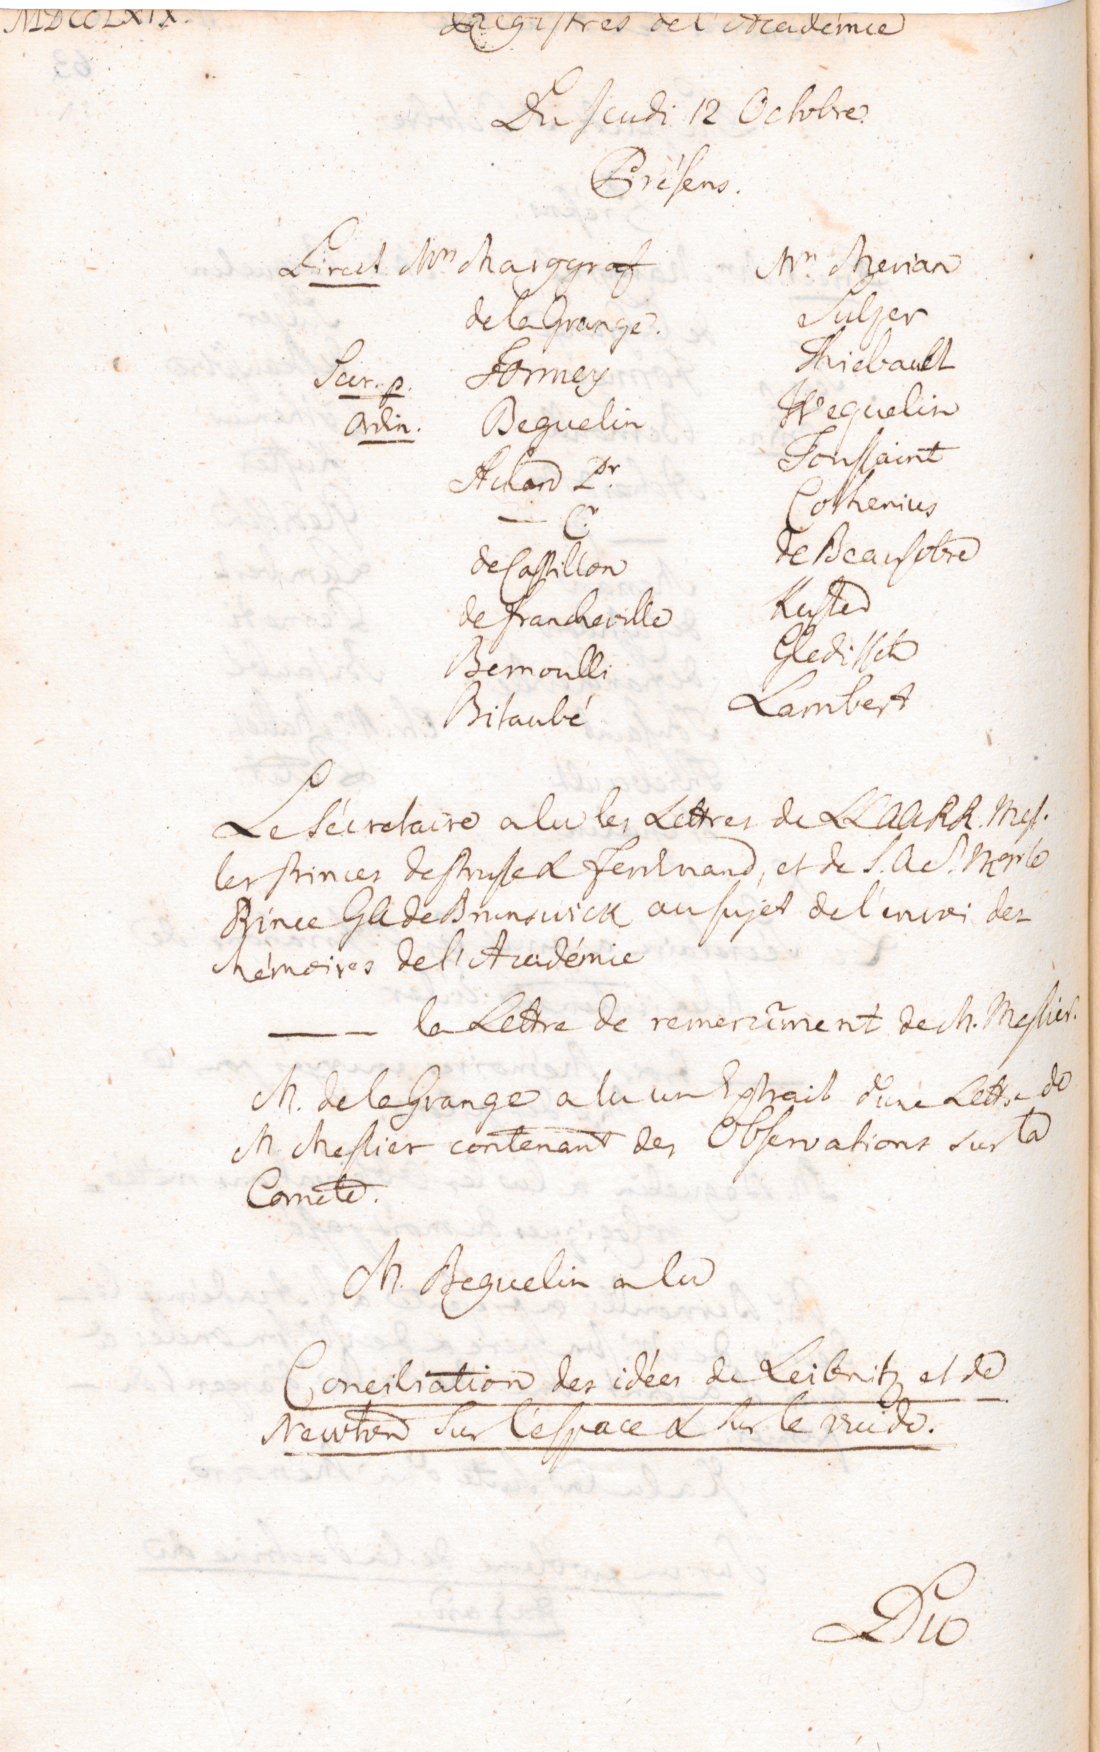 MDCCLXIX.
Registres de l'Académie
Du Jeudi 12 Octobre.
Présens.
Direct Mrs Marggraf
de la Grange.
Secr. p. Formey
Ordin. Beguelin
Achard Pr
— Cr
de Castillon
de Francheville
Bernoulli
Bitaubé
Mrs Merian
Sulzer
Thiebault
Weguelin
Toussaint
Cothenius
de Beausobre
Kuster
Gleditsch
Lambert
Le Sécretaire a lu les Lettres de LLAARR. Mes.
les Princes de Prusse & Ferdinand, et de S. A. S. Mgr le
Prince de Brunswick au sujet de l'envoi des
Mémoires de l'Académie
—— la Lettre de remerciment de M. Messier.
M. de la Grange a lu un Extrait d'une Lettre de
M. Messier contenant des Observations sur la
Comete.
M. Beguelin a lu
Conciliation des idées de Leibnitz et de
Newton sur l'espace & sur le vuide.
Du